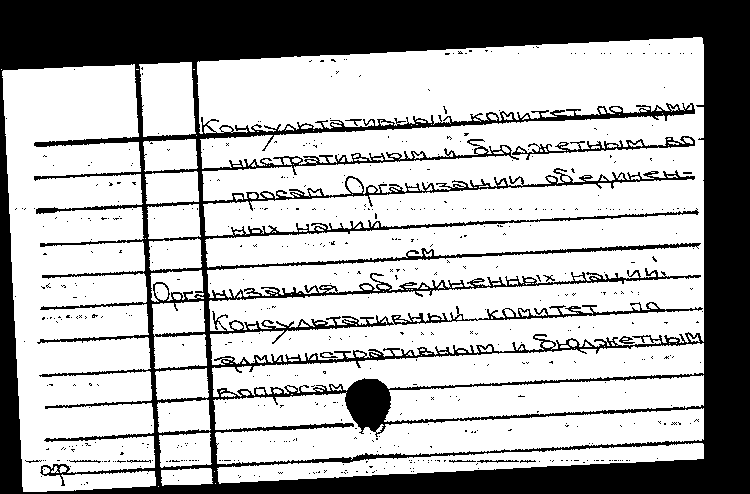 Консультативный комитет по адми-
нистративным и бюджетным во-
просам Организации об'единен-
ных наций
см
Организация об'единенных наций.
Консультативный комитет по
административным и бюджетным
вопросам